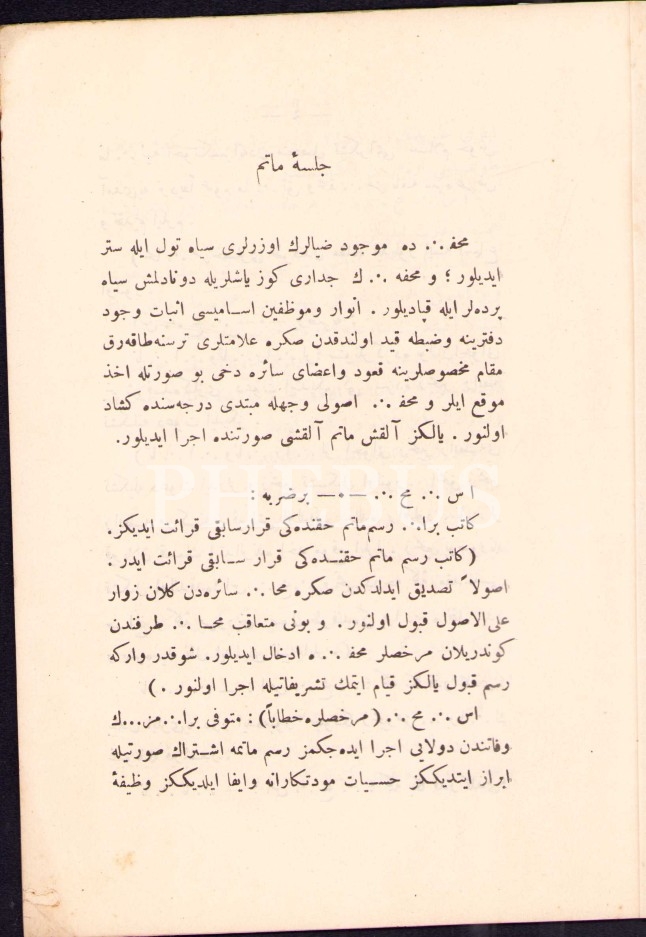 جلسۀ ماتم
محفـ ∴ ده موجود ضیالرك اوزرلری سیاه تول ایله ستر
ایدیلور ؛ و محفه ∴ ك جداری كوز یاشلریله دوناد‌لمش سیاه
پرده‌لر ایله قپادیلور . انوار وموظفین اسـامیسی اثبات وجود
دفترینه وضبطه قید اولندقدن صكره علامتلری ترسنه‌طاقه‌رق
مقام مخصوصلرینه قعود واعضای سائره دخی بو صورتله اخذ
موقع ایلر و محفـ ∴ اصولی وجهله مبتدی درجه‌سنده كشاد
اولنور . یالكز آلقش ماتم آلقشی صورتنده اجرا ایدیلور.
اس ∴ مح ∴ — ٥ — برضربه :
كاتب برا∴ رسم‌ماتم حقنده‌كی قرارسابقی قرائت ایدیكز.
(كاتب رسم ماتم حقنـده‌كی قرار سـابقی قرائت ایدر .
اصولاً تصدیق ایدلدكدن صكره محا ∴ سائره‌دن كلان زوار
علی‌الاصول قبول اولنور . و بونی متعاقب محـا ∴ طرفندن
كوندریلان مرخصلر محفـ ∴ ه ادخال ایدیلور. شوقدر واركه
رسم قبول یالكز قیام ایتمك تشریفاتیله اجرا اولنور . )
اس ∴ مح ∴ (مرخصلره‌خطاباً) : متوفی برا∴مز...ك
وفاتندن دولایی اجرا ایده‌جكمز رسم ماتمه اشـتراك صورتیله
ابراز ایتدیككز حسـیات مودتكارانه وایفا ایلدیككز وظیفۀ
PHEBUS